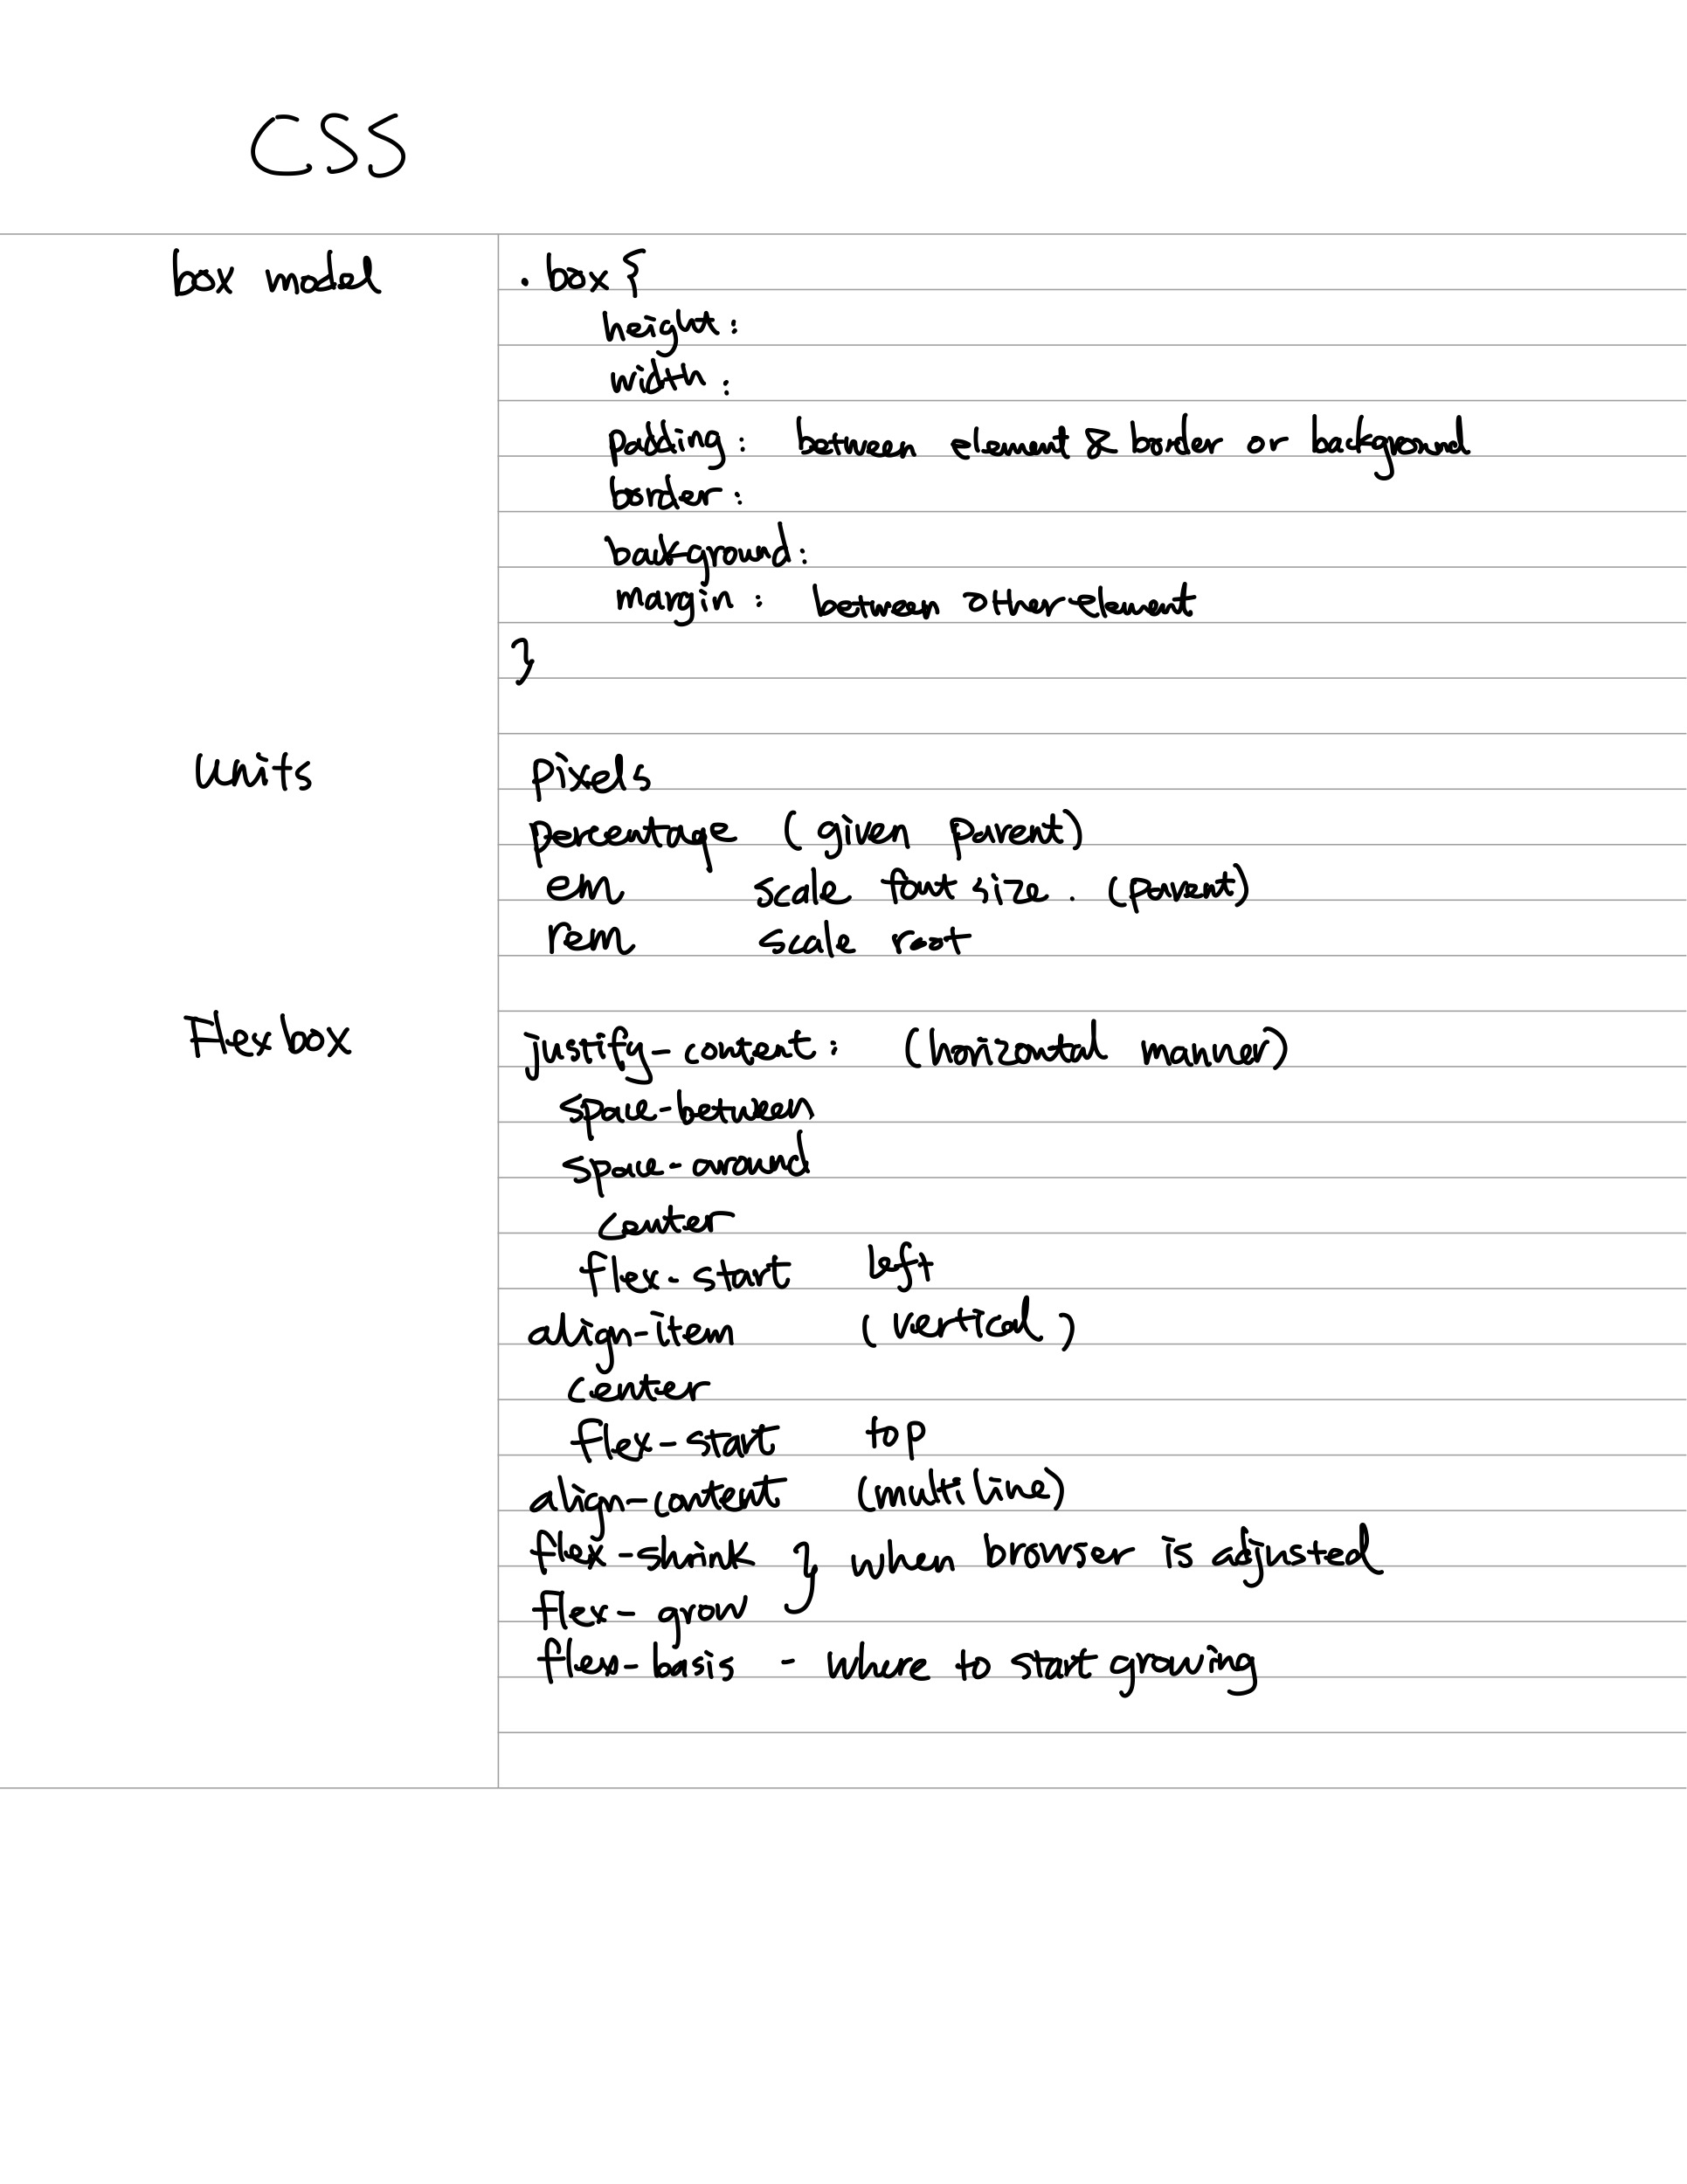 CSS
box model
.box{
height:
width:
padding: between element & border or background
border:
background:
margin: between other element
}
Units
pixels
percentage (given parent)
em scale font size. (parent)
rem scale root
Flexbox
justify-content: (horizontal manner)
space-between
space-around
center
flex-start left
align-item (vertical)
center
flex-start top
align-content (multiline)
flex-shrink } when browser is adjusted
flex-grow
flex-basis - where to start growing